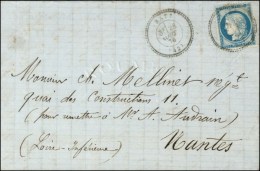 Monsieur Ch. Mellinet
quai des Constructions 11.
(pour remettre à Mr A. Audrain)
Nantes
(Loire-Inférieure)